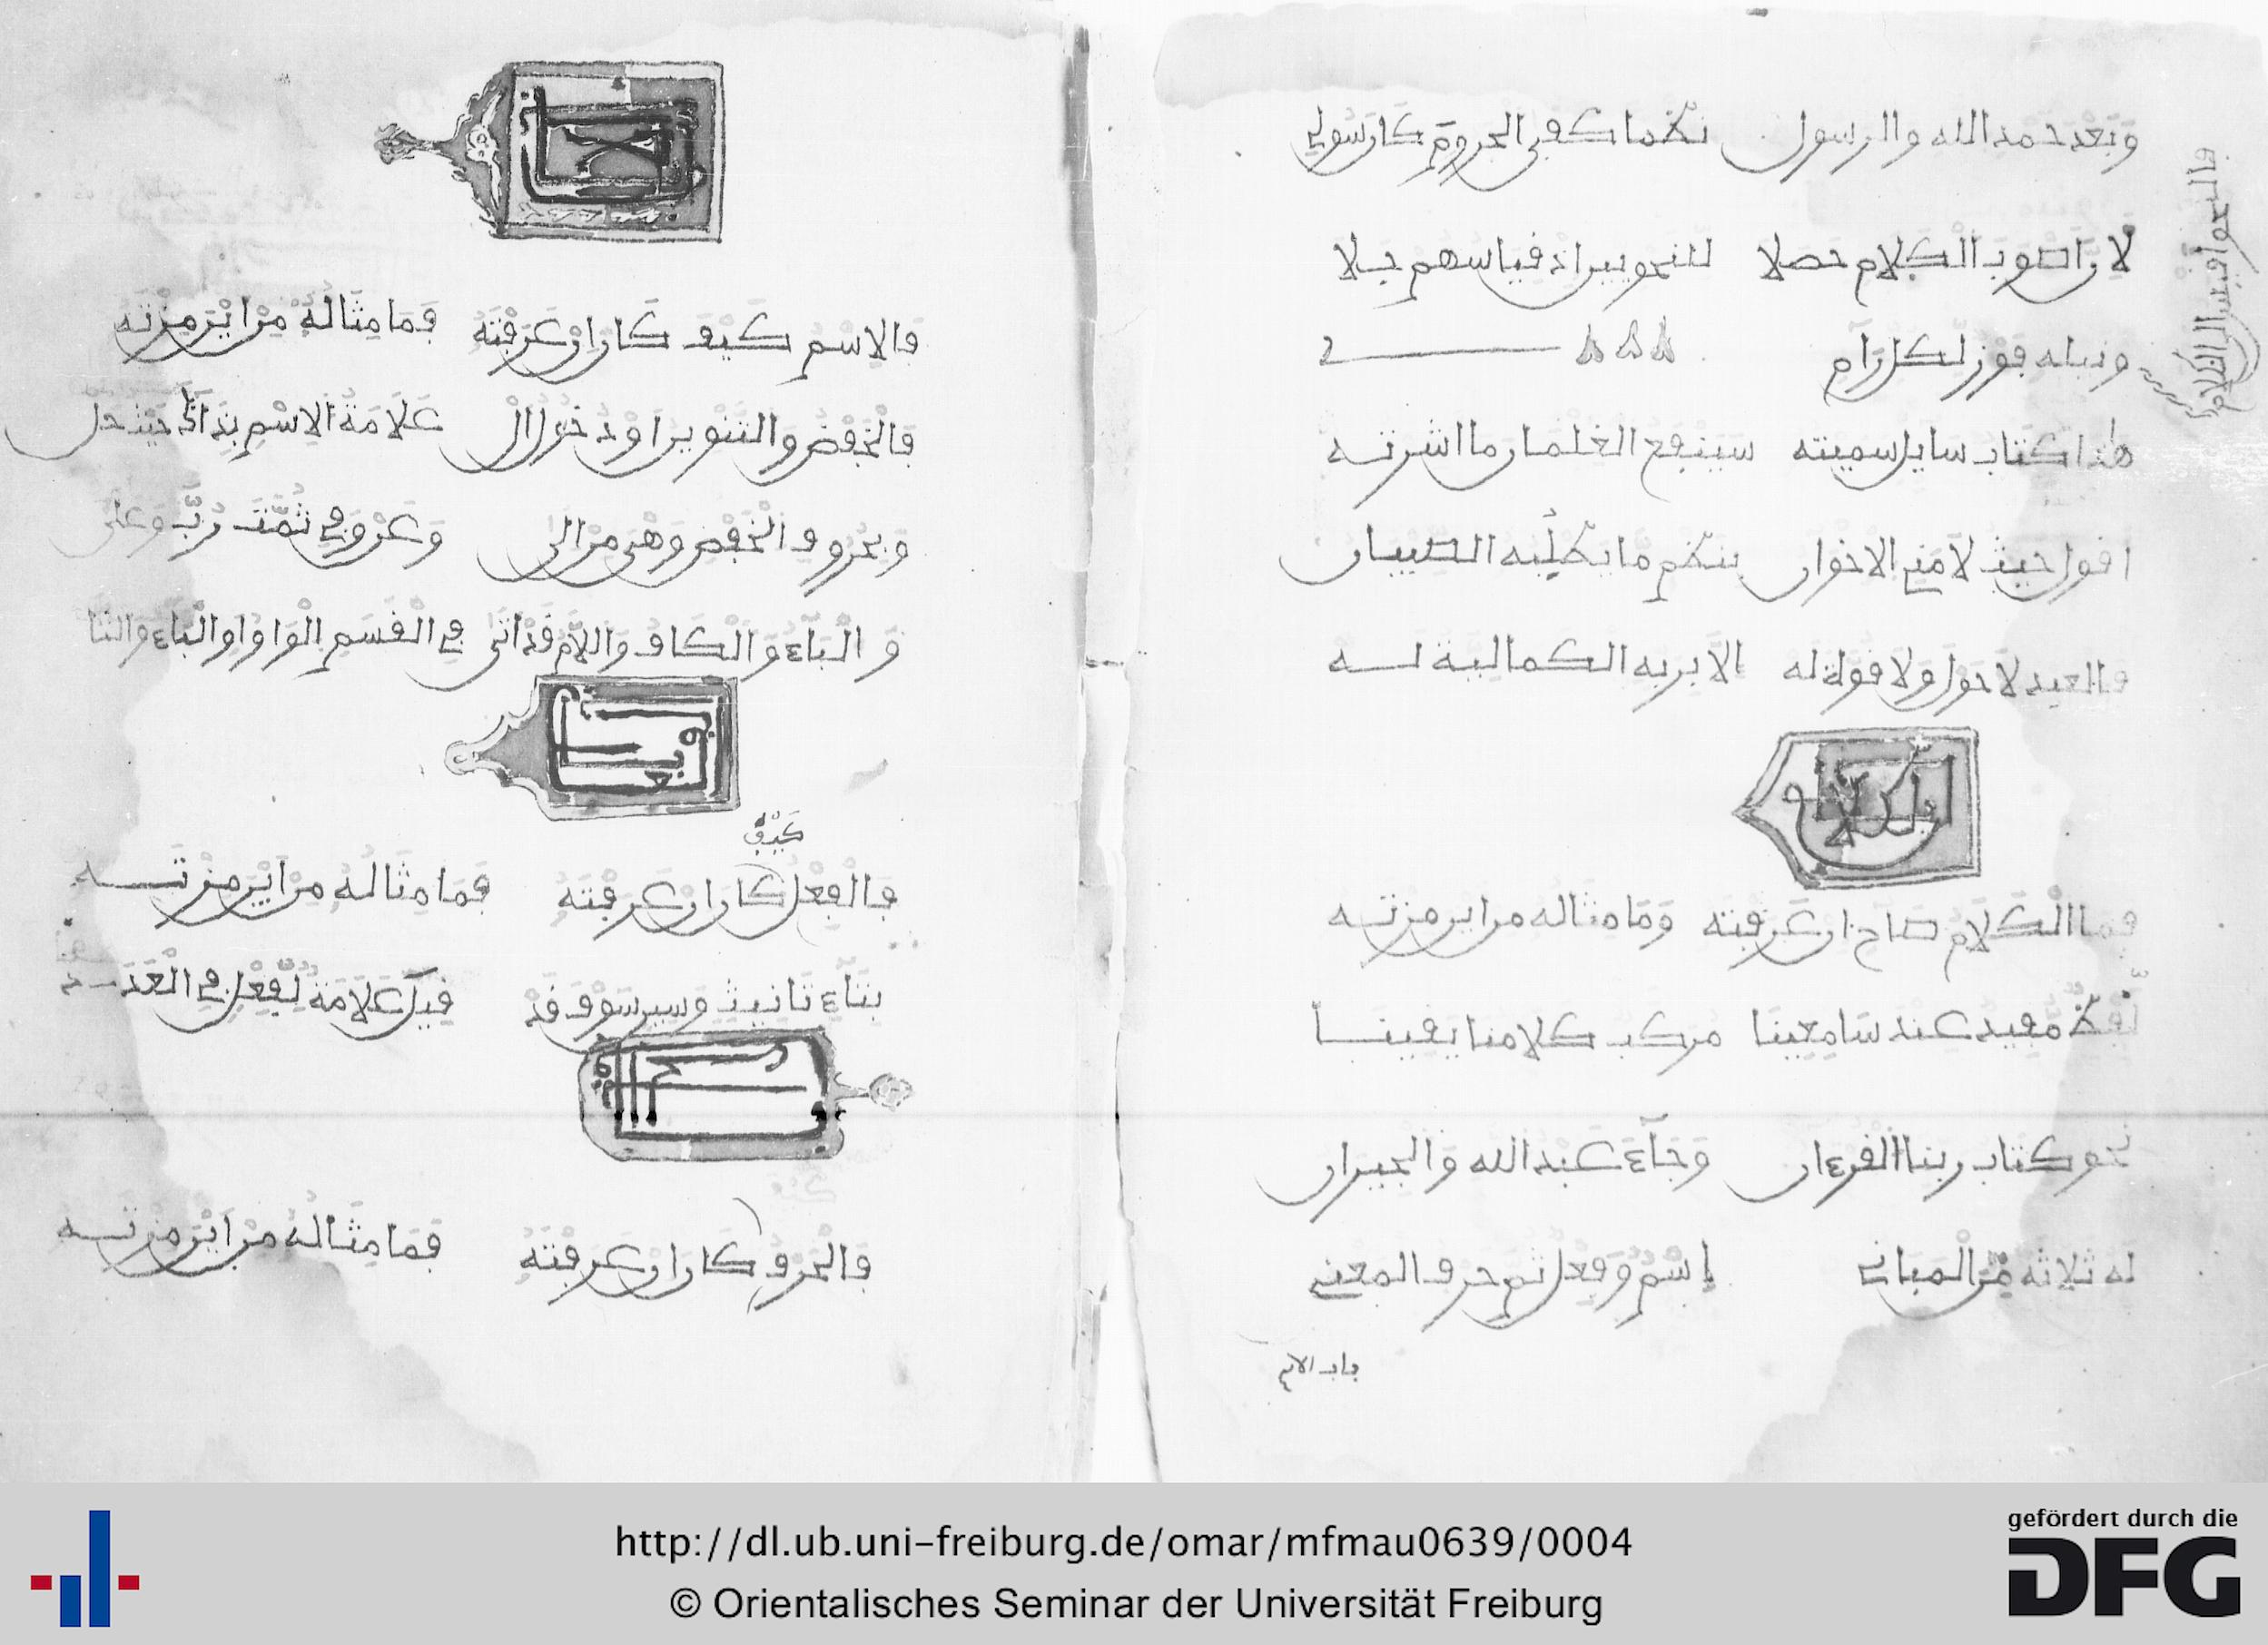 وبعد حمد الله والرسول نظما كفى الجروم كان سولي
لان صوب الكلام حصلا للنحويين اذ قياسهم جلا
فالنحو اقيس الى الكلام
ونيله فوز لكل رام
هذا كتاب سايل سميته سينفع الغلمان ما اشرته
اقول حيث لامني الاخوان بنظم ما يطلبه الصبيان
والعبد لا حول ولا قوة له الا بربه الكمال
باب الكلام
فما الكلام صاح ان عرفته وما مثاله من اين رمزته
لفظ مفيد عند سامعينا مركب كلامنا يقينا
نحو كتاب ربنا القرءان وجاء عبد الله والجيران
له ثلاثة من المباني اسم وفعل ثم حرف المعنى
باب الاسم
فالاسم كيف كان ان عرفته فما مثاله من اين رمزته
فالخفض والتنوين او دخول ال علامة الاسم حيث حل
وبحروف الخفض وهي من الى وعن وفي ثمت رب وعلى
والباء والكاف واللام قد اتى في القسم الواو والباء والتا
باب الفعل
كيف
فالفعل كان ان عرفته فما مثاله من اين رمزته
بتاء تانيث وسين سوف قد قيل علامة لفعل في العدد
باب الحرف
والحرف كان ان عرفته فما مثاله من اين رمزته
http://dl.ub.uni-freiburg.de/omar/mfmau0639/0004
© Orientalisches Seminar der Universität Freiburg
gefördert durch die
DFG